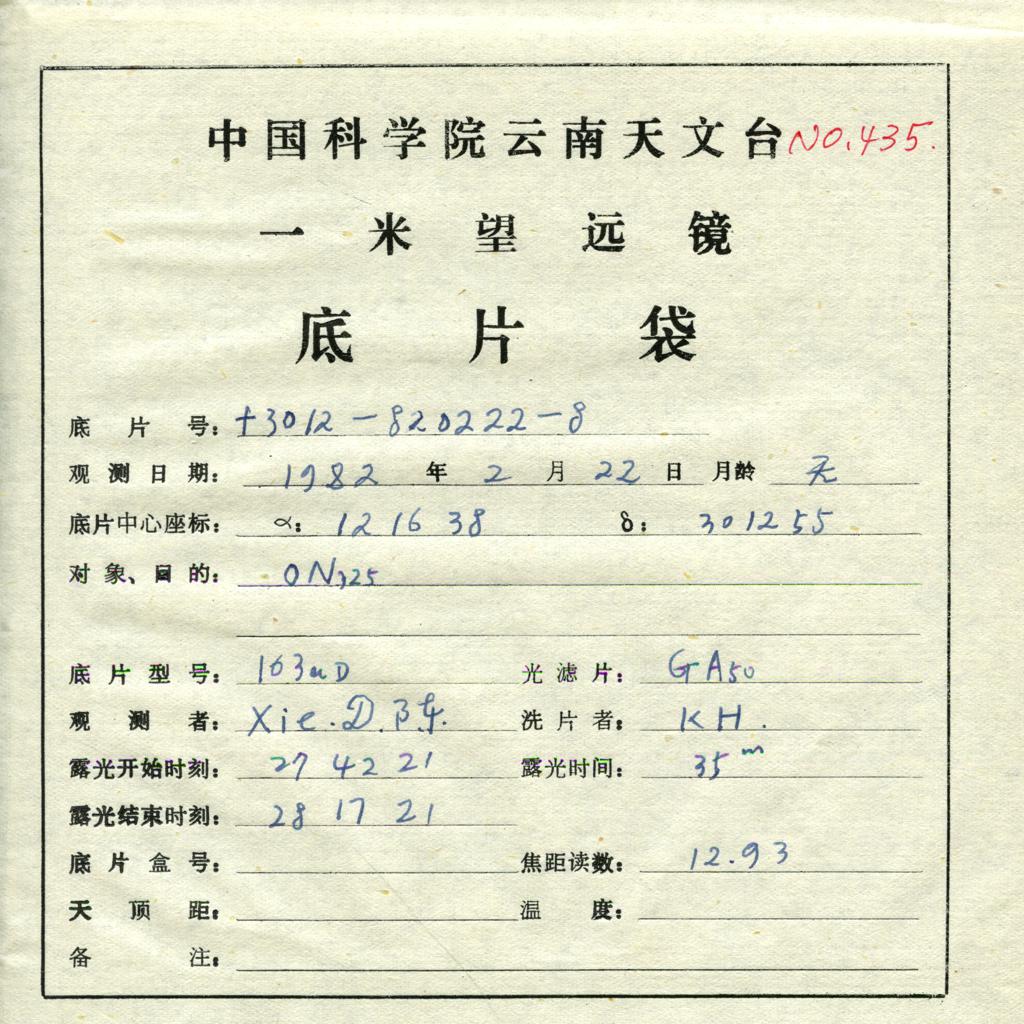 中国科学院云南天文台 NO.435.
一米望远镜
底片袋
底片号: +3012-820222-8
观测日期: 1982 年 2 月 22 日 月龄 无
底片中心座标: α: 12 16 38 δ: 30 12 55
对象、目的: ON325
底片型号: 103aD 光滤片: GA50
观测者: Xie.D.陈. 洗片者: KH.
露光开始时刻: 27 42 21 露光时间: 35m
露光结束时刻: 28 17 21
底片盒号: 焦距读数: 12.93
天顶距: 温度:
备注: